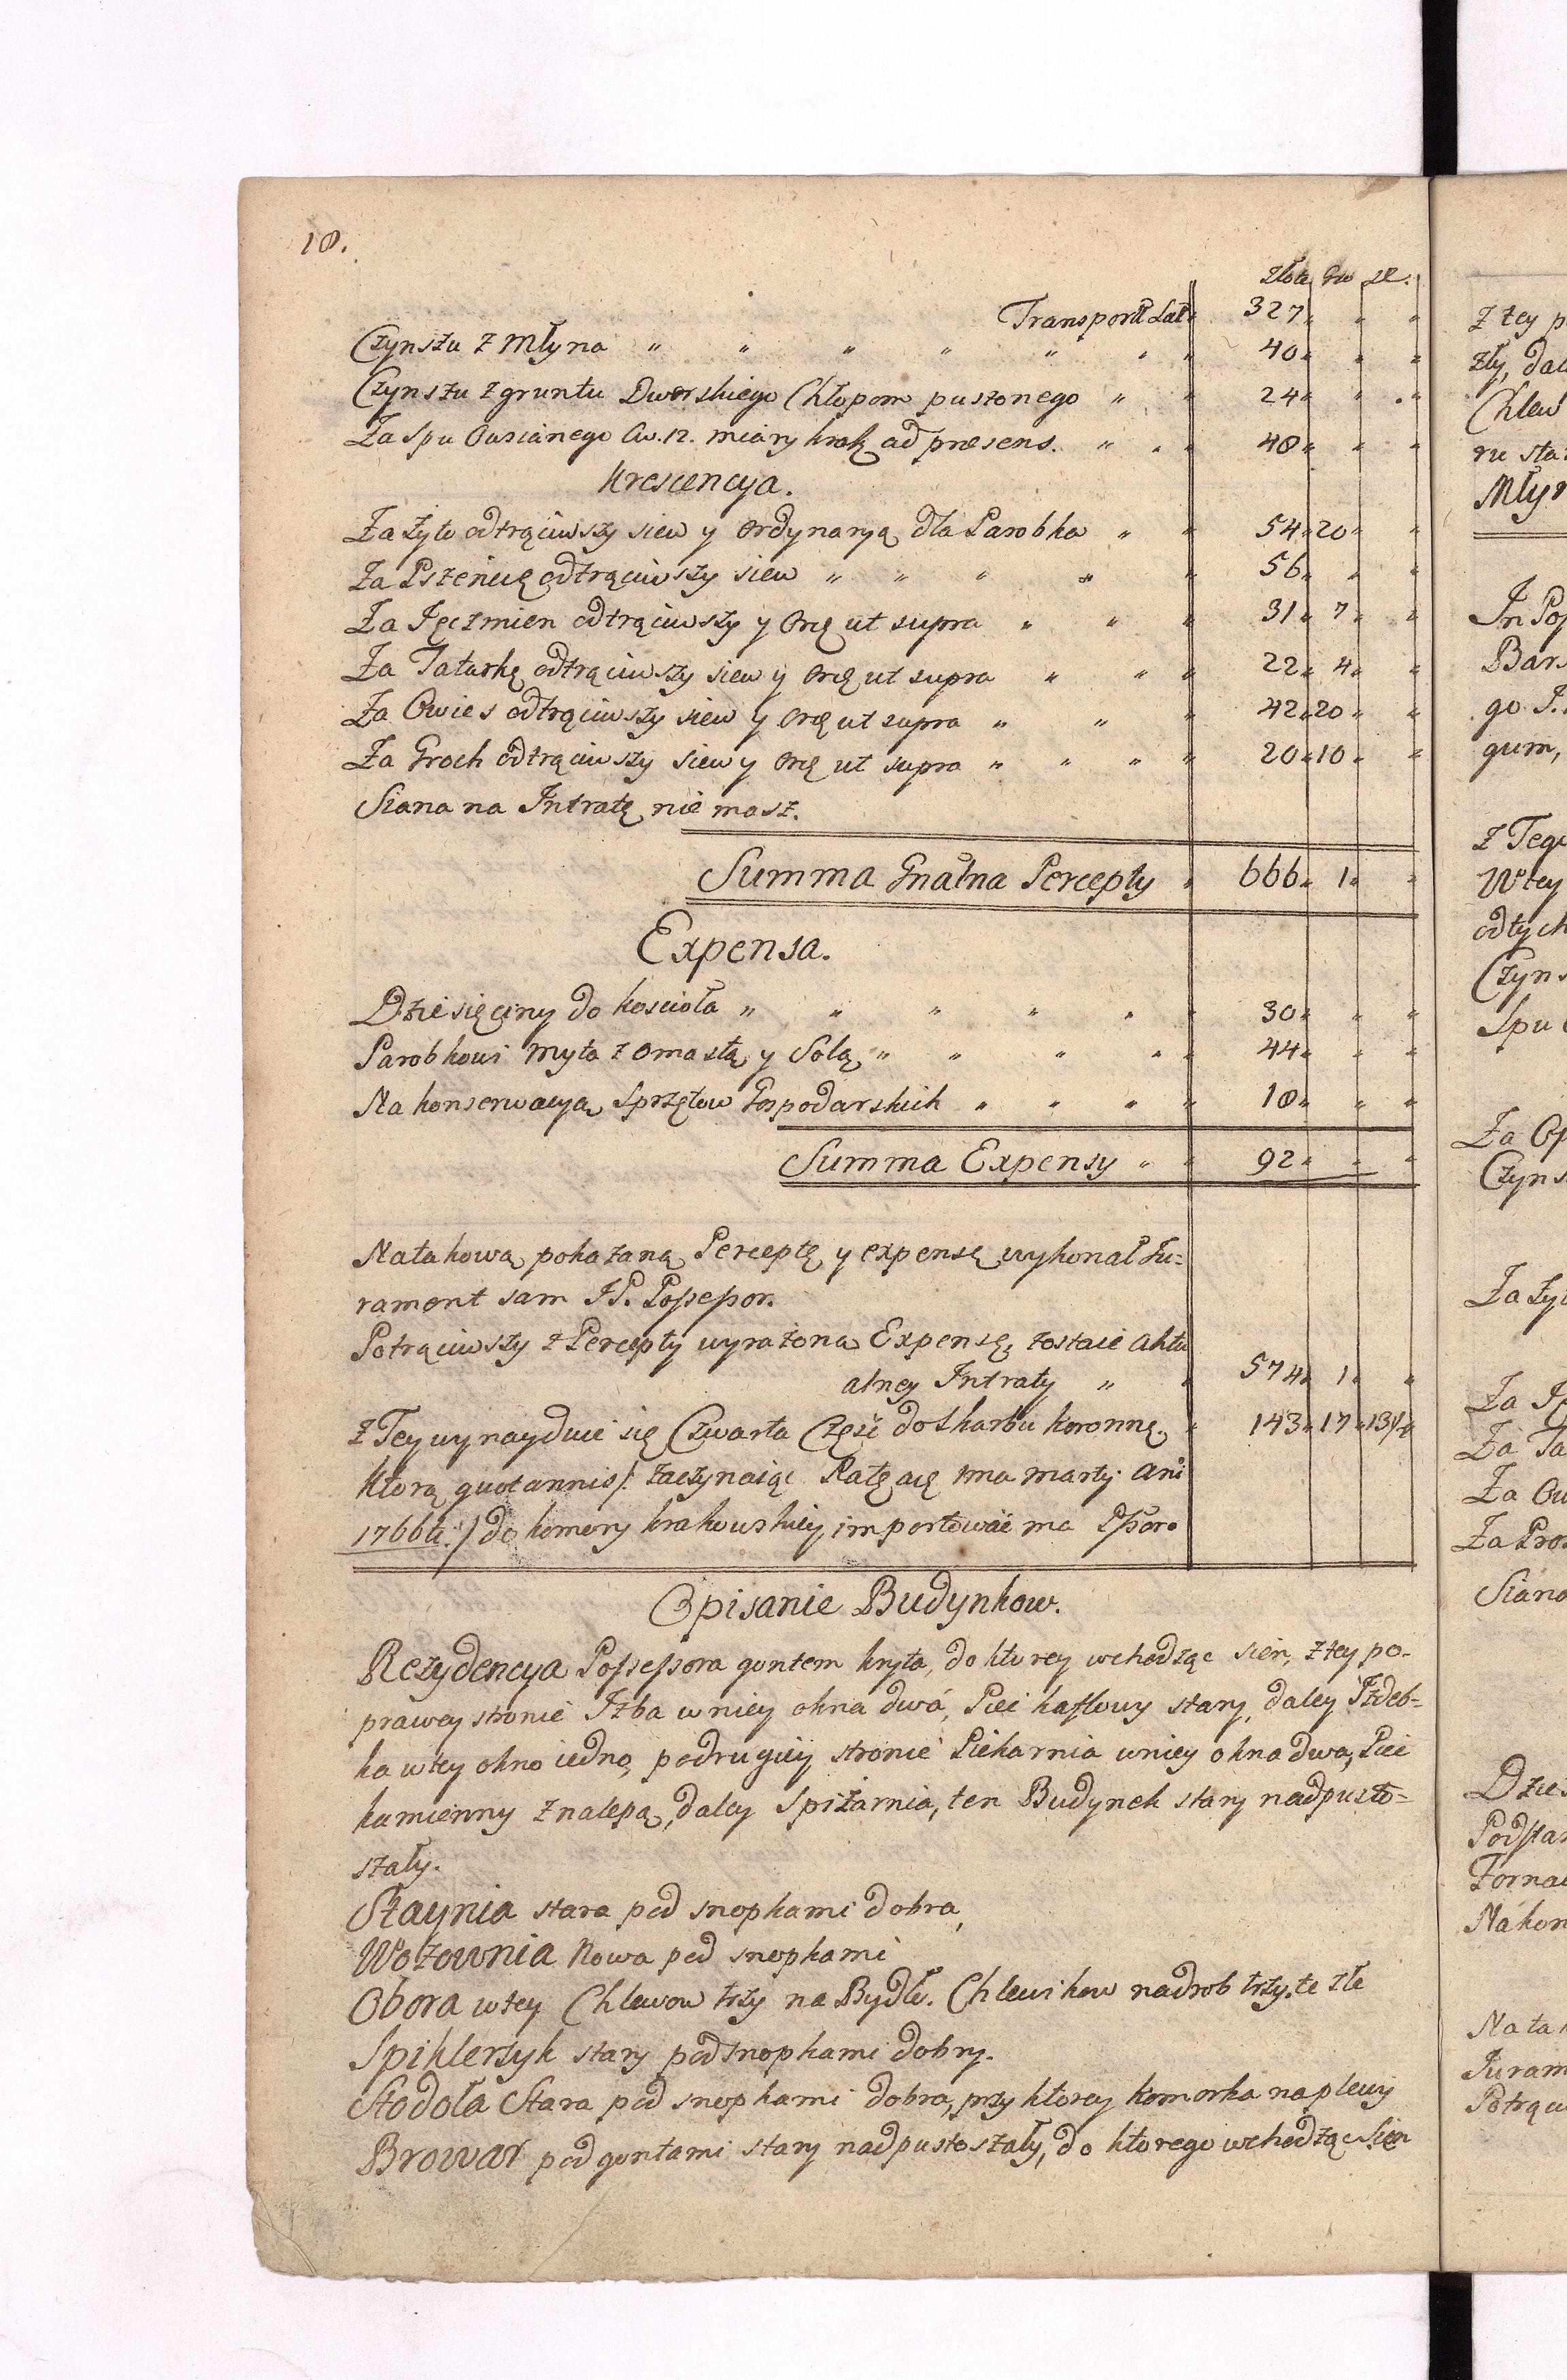 18.
Złote Gro sz.
Transport Lat. 327 " "
Czynszu z Młyna " " " " " " 40 " "
Czynszu z gruntu Dworskiego Chłopom puszonego " 24 " "
Za Spu Owsianego Cw. 12. miary krak ad præsens. " " 48 " "
Krescencya.
Za żyto odtrąciwszy siew y Ordynaryą dla Parobka " " 54 " 20 "
Za Pszenicę odtrąciwszy siew " " " " 56 " "
Za Jęczmien odtrąciwszy y Orę ut supra " " " 31 " 7 "
Za Tatarkę odtrąciwszy siew y Orę ut supra " " " 22 " 4 "
Za Owies odtrąciwszy siew y Orę ut supra " " " 42 " 20 "
Za Groch odtrąciwszy siew y Orę ut supra " " " 20 " 10 "
Siana na Intratę nie masz.
Summa Gnalna Percepty " 666 " 1 "
Expensa.
Dziesięciny do kościoła " " " " " 30 " "
Parobkowi myta z omastą y Solą " " " " 44 " "
Na konserwacyą Sprzętow Gospodarskich " " " 18 " "
Summa Expensy " " 92 " "
Na takową pokazaną Perceptę y expensę wykonał Ju=
rament sam JP. Possessor.
Potrąciwszy z Percepty wyrażoną Expensę, zostaie aktu
alney Intraty " " 574 " 1 "
z Tey wynayduie się Czwarta Część do Skarbu koronnẽ. " 143 " 17 " 13½
którą quotannis /: zaczynaiąc Ratę a 1ma marty: Ani
1766ti :/ do komory krakowskiey importować ma Pssor.
Opisanie Budynkow.
Rezydencya Possessora gontem kryta, do ktorey wchodząc sień, z tey po-
prawey stronie Izba w niey okna dwá, Piec kaflowy stary, daley Izdeb=
ka w tey okno iedno, po drugiey stronie Piekarnia w niey okna dwa, Piec
kamienny z nalepą, daley Spiżarnia, ten Budynek stary nadpusto=
szały.
Staynia stara pod snopkami dobra,
Wozownia Nowa pod snopkami
Obora w tey Chlewow trzy na Bydło. Chlewikow na drob trzy, te złe
Spiklerzyk stary pod snopkami dobry.
Stodoła Stara pod snopkami dobra, przy ktorey komorka na plewy
Browar pod gontami stary nadpustoszały, do ktorego wchodząc Sien
z tey p
zły, dal
Chlew
ru sta
Młyn
In Pos
Bars
go J.
gum,
z Teg
W tey
od tych
Czyns
Spu
Za Op
Czyns
Za żyt
Za Ję
Za Ta
Za Ow
Za Pros
Siano
Dzies
Podstar
Fornal
Na kon
Na tak
Juram
Potrąci